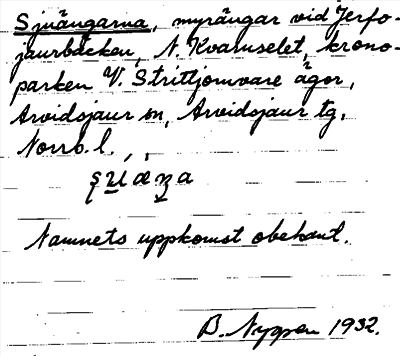 Sjuängarna, myrängar vid Jerfo-
jaurbäcken, N. Kvarnselet, krono-
parken V. Strittjomvare ägor,
Arvidsjaur sn, Arvidsjaur tg,
Norrb. l.
Namnets uppkomst obekant.
B. Nygren 1932.